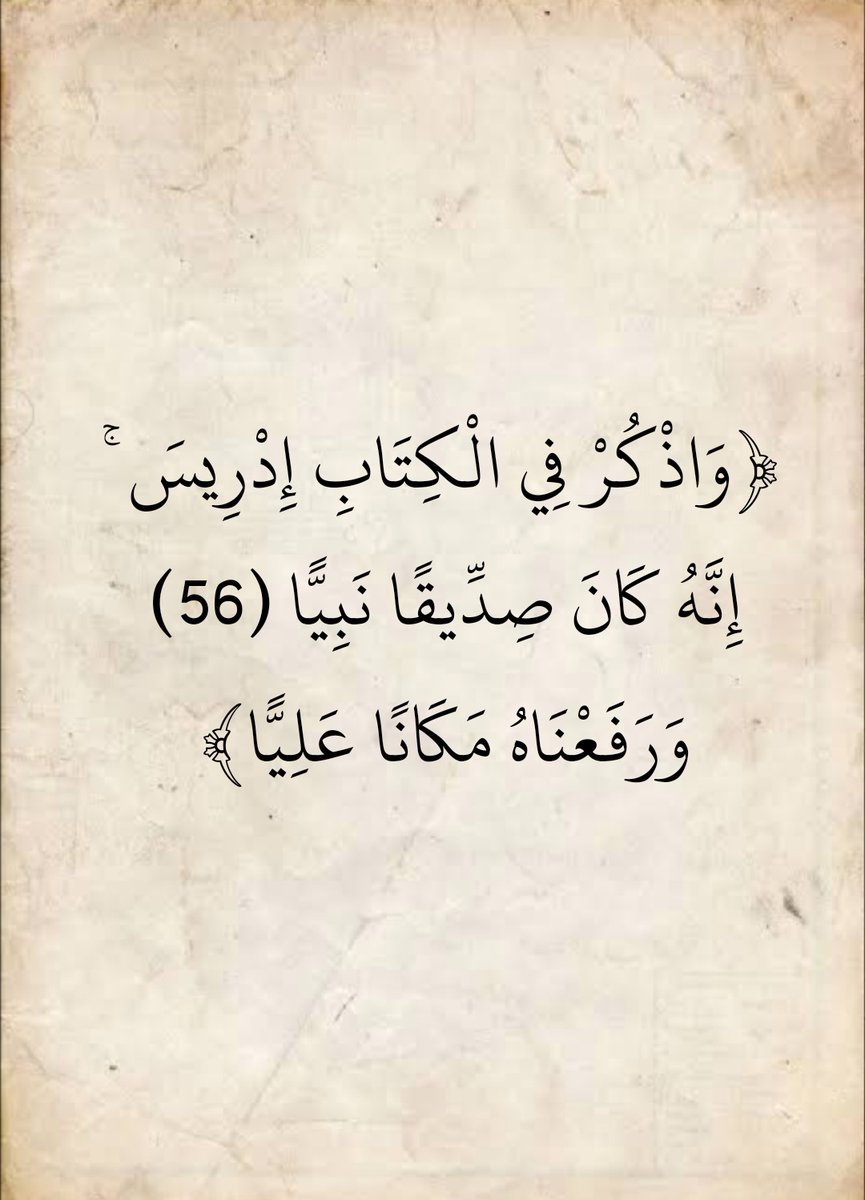 ﴿وَاذْكُرْ فِي الْكِتَابِ إِدْرِيسَ ۚ
إِنَّهُ كَانَ صِدِّيقًا نَبِيًّا (56)
وَرَفَعْنَاهُ مَكَانًا عَلِيًّا﴾